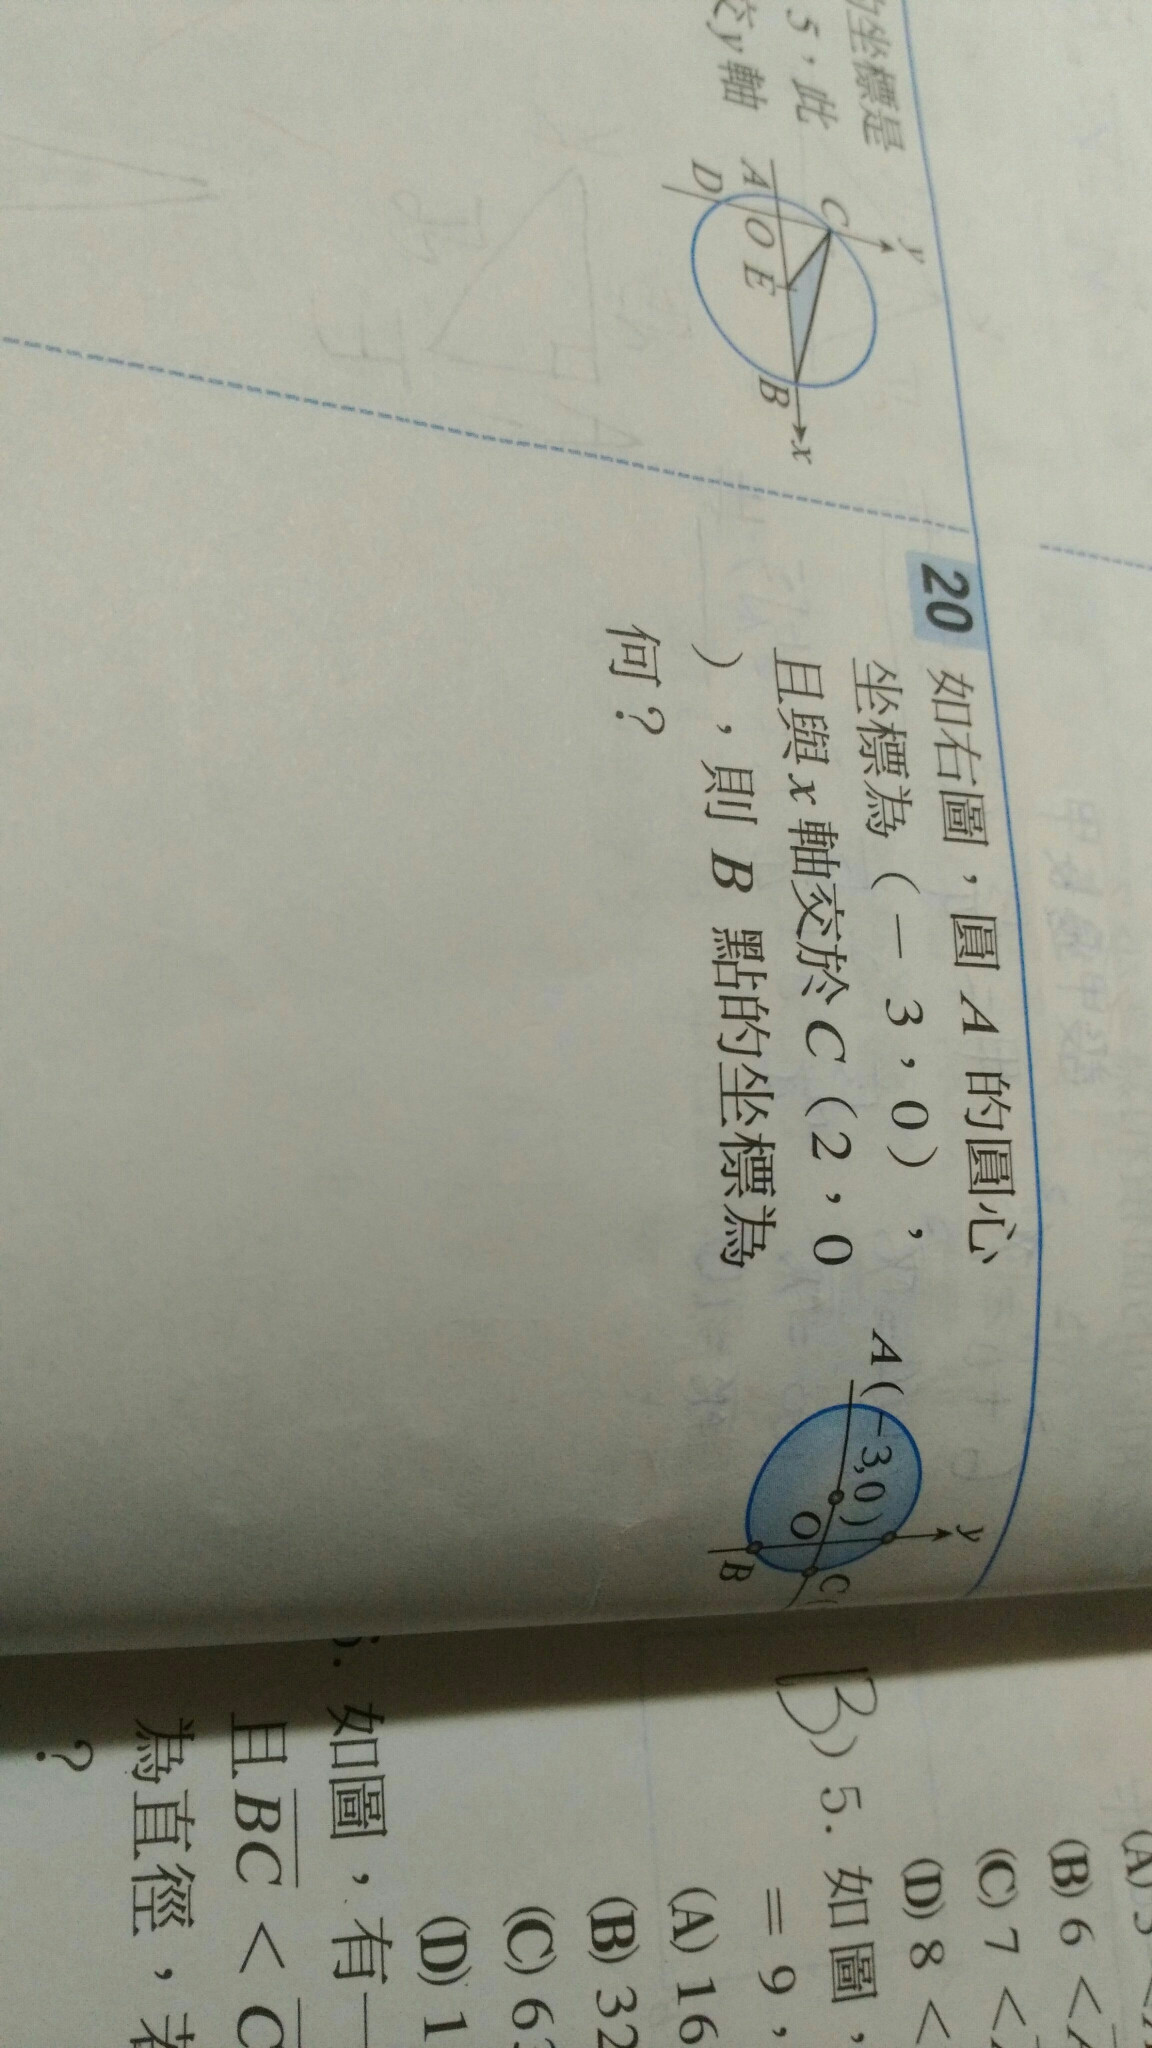 的坐標是
5，此
交y軸
y
C
A
O
E
D
B
x
20
如右圖，圓 A 的圓心
坐標為（－3，0），
且與 x 軸交於 C（2，0
），則 B 點的坐標為
何？
y
A(－3,0)
O
C(
B
(B)6<
(C)7<
(D)8<
B)5. 如圖，
=9，
(A)16
(B)32
(C)63
(D)1
如圖，有一
且BC<C
為直徑，若
？